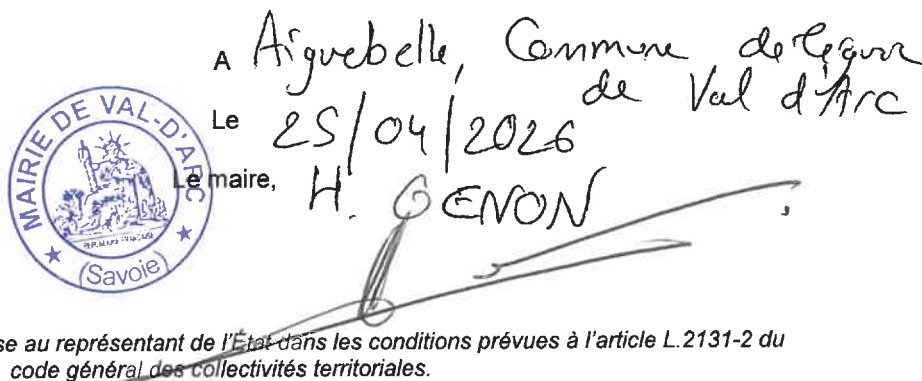 A Aiguebelle, Commune déléguée
de Val d'Arc
Le 25/04/2026
Le maire, H. GENON
MAIRIE DE VAL-D'ARC
RÉPUBLIQUE FRANÇAISE
(Savoie)
se au représentant de l'État dans les conditions prévues à l'article L.2131-2 du
code général des collectivités territoriales.